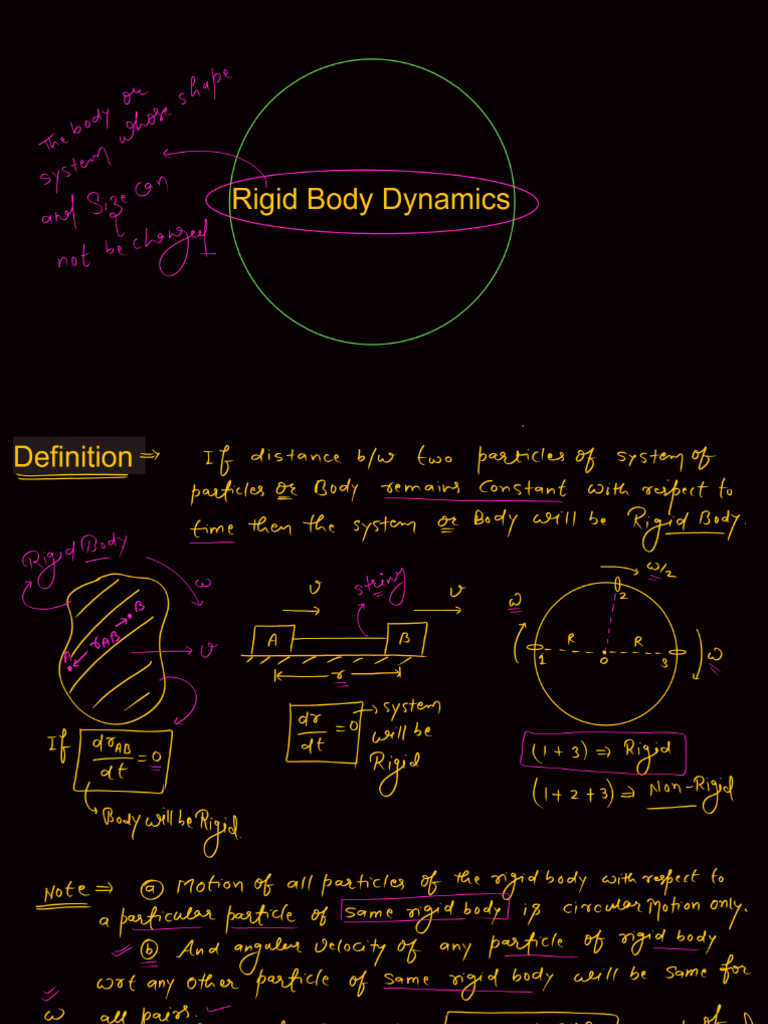 The body or
system whose shape
and Size can
not be changed
Rigid Body Dynamics
Definition ⇒ If distance b/w two particles of system of
particles or Body remains constant with respect to
time then the system or Body will be Rigid Body.
Rigid Body
ω
B
r_AB
A
v
If dr_AB/dt = 0
Body will be Rigid.
v
string
v
A
B
r
dr/dt = 0 → system
will be
Rigid
ω/2
2
ω
R
R
1
0
3
ω
(1+3) ⇒ Rigid
(1+2+3) ⇒ Non-Rigid
Note ⇒ (a) Motion of all particles of the rigid body with respect to
a particular particle of same rigid body is circular Motion only.
(b) And angular velocity of any particle of rigid body
wrt any other particle of same rigid body will be same for
ω all pairs.
of